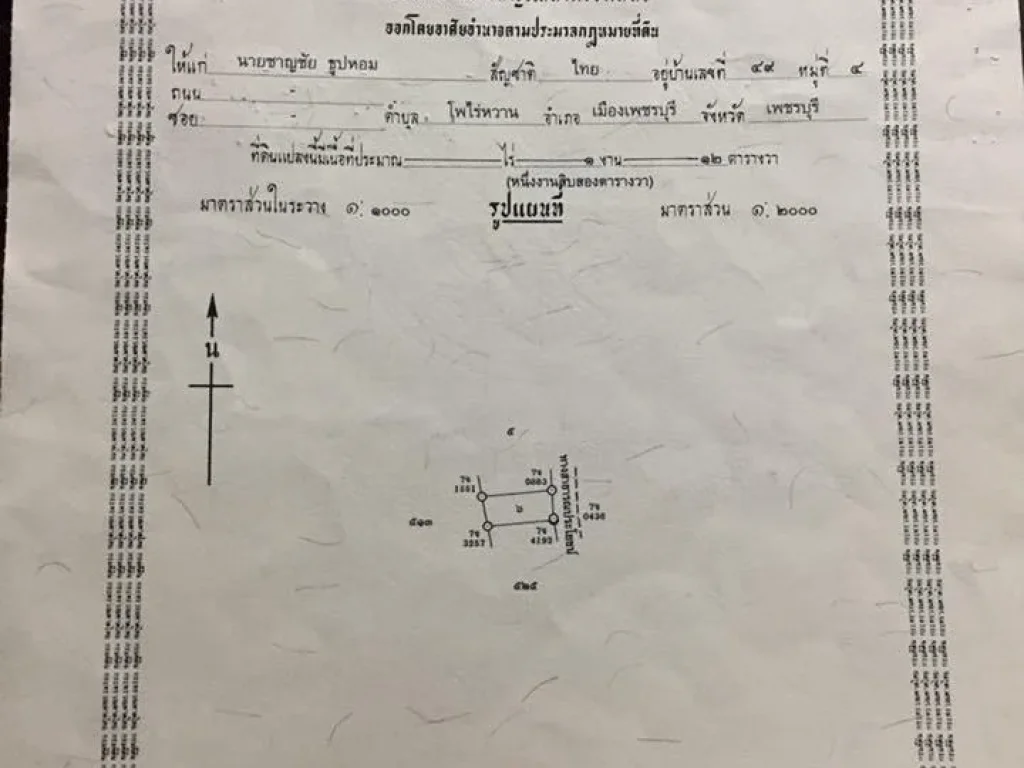 ออกโดยอาศัยอำนาจตามประมวลกฎหมายที่ดิน
ให้แก่ นายชาญชัย ธูปหอม สัญชาติ ไทย อยู่บ้านเลขที่ ๔๙ หมู่ที่ ๔
ถนน -
ซอย - ตำบล โพไร่หวาน อำเภอ เมืองเพชรบุรี จังหวัด เพชรบุรี
ที่ดินแปลงนี้มีเนื้อที่ประมาณ ไร่ ๑ งาน ๑๒ ตารางวา
(หนึ่งงานสิบสองตารางวา)
มาตราส่วนในระวาง ๑: ๑๐๐๐ รูปแผนที่ มาตราส่วน ๑: ๒๐๐๐
น
๕
7ง 1551
7ง 0883
๖
ทางสาธารณประโยชน์
7ง 0436
๕๑๓
7ง 3257
7ง 4193
๕๒๕